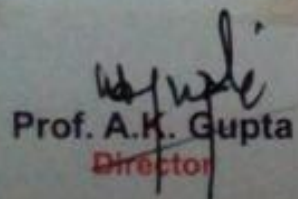 Prof. A.K. Gupta
Director